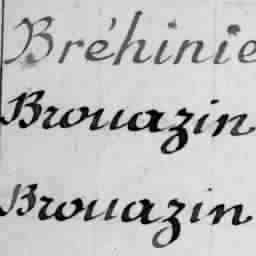 Bréhinie
Brouazin
Brouazin